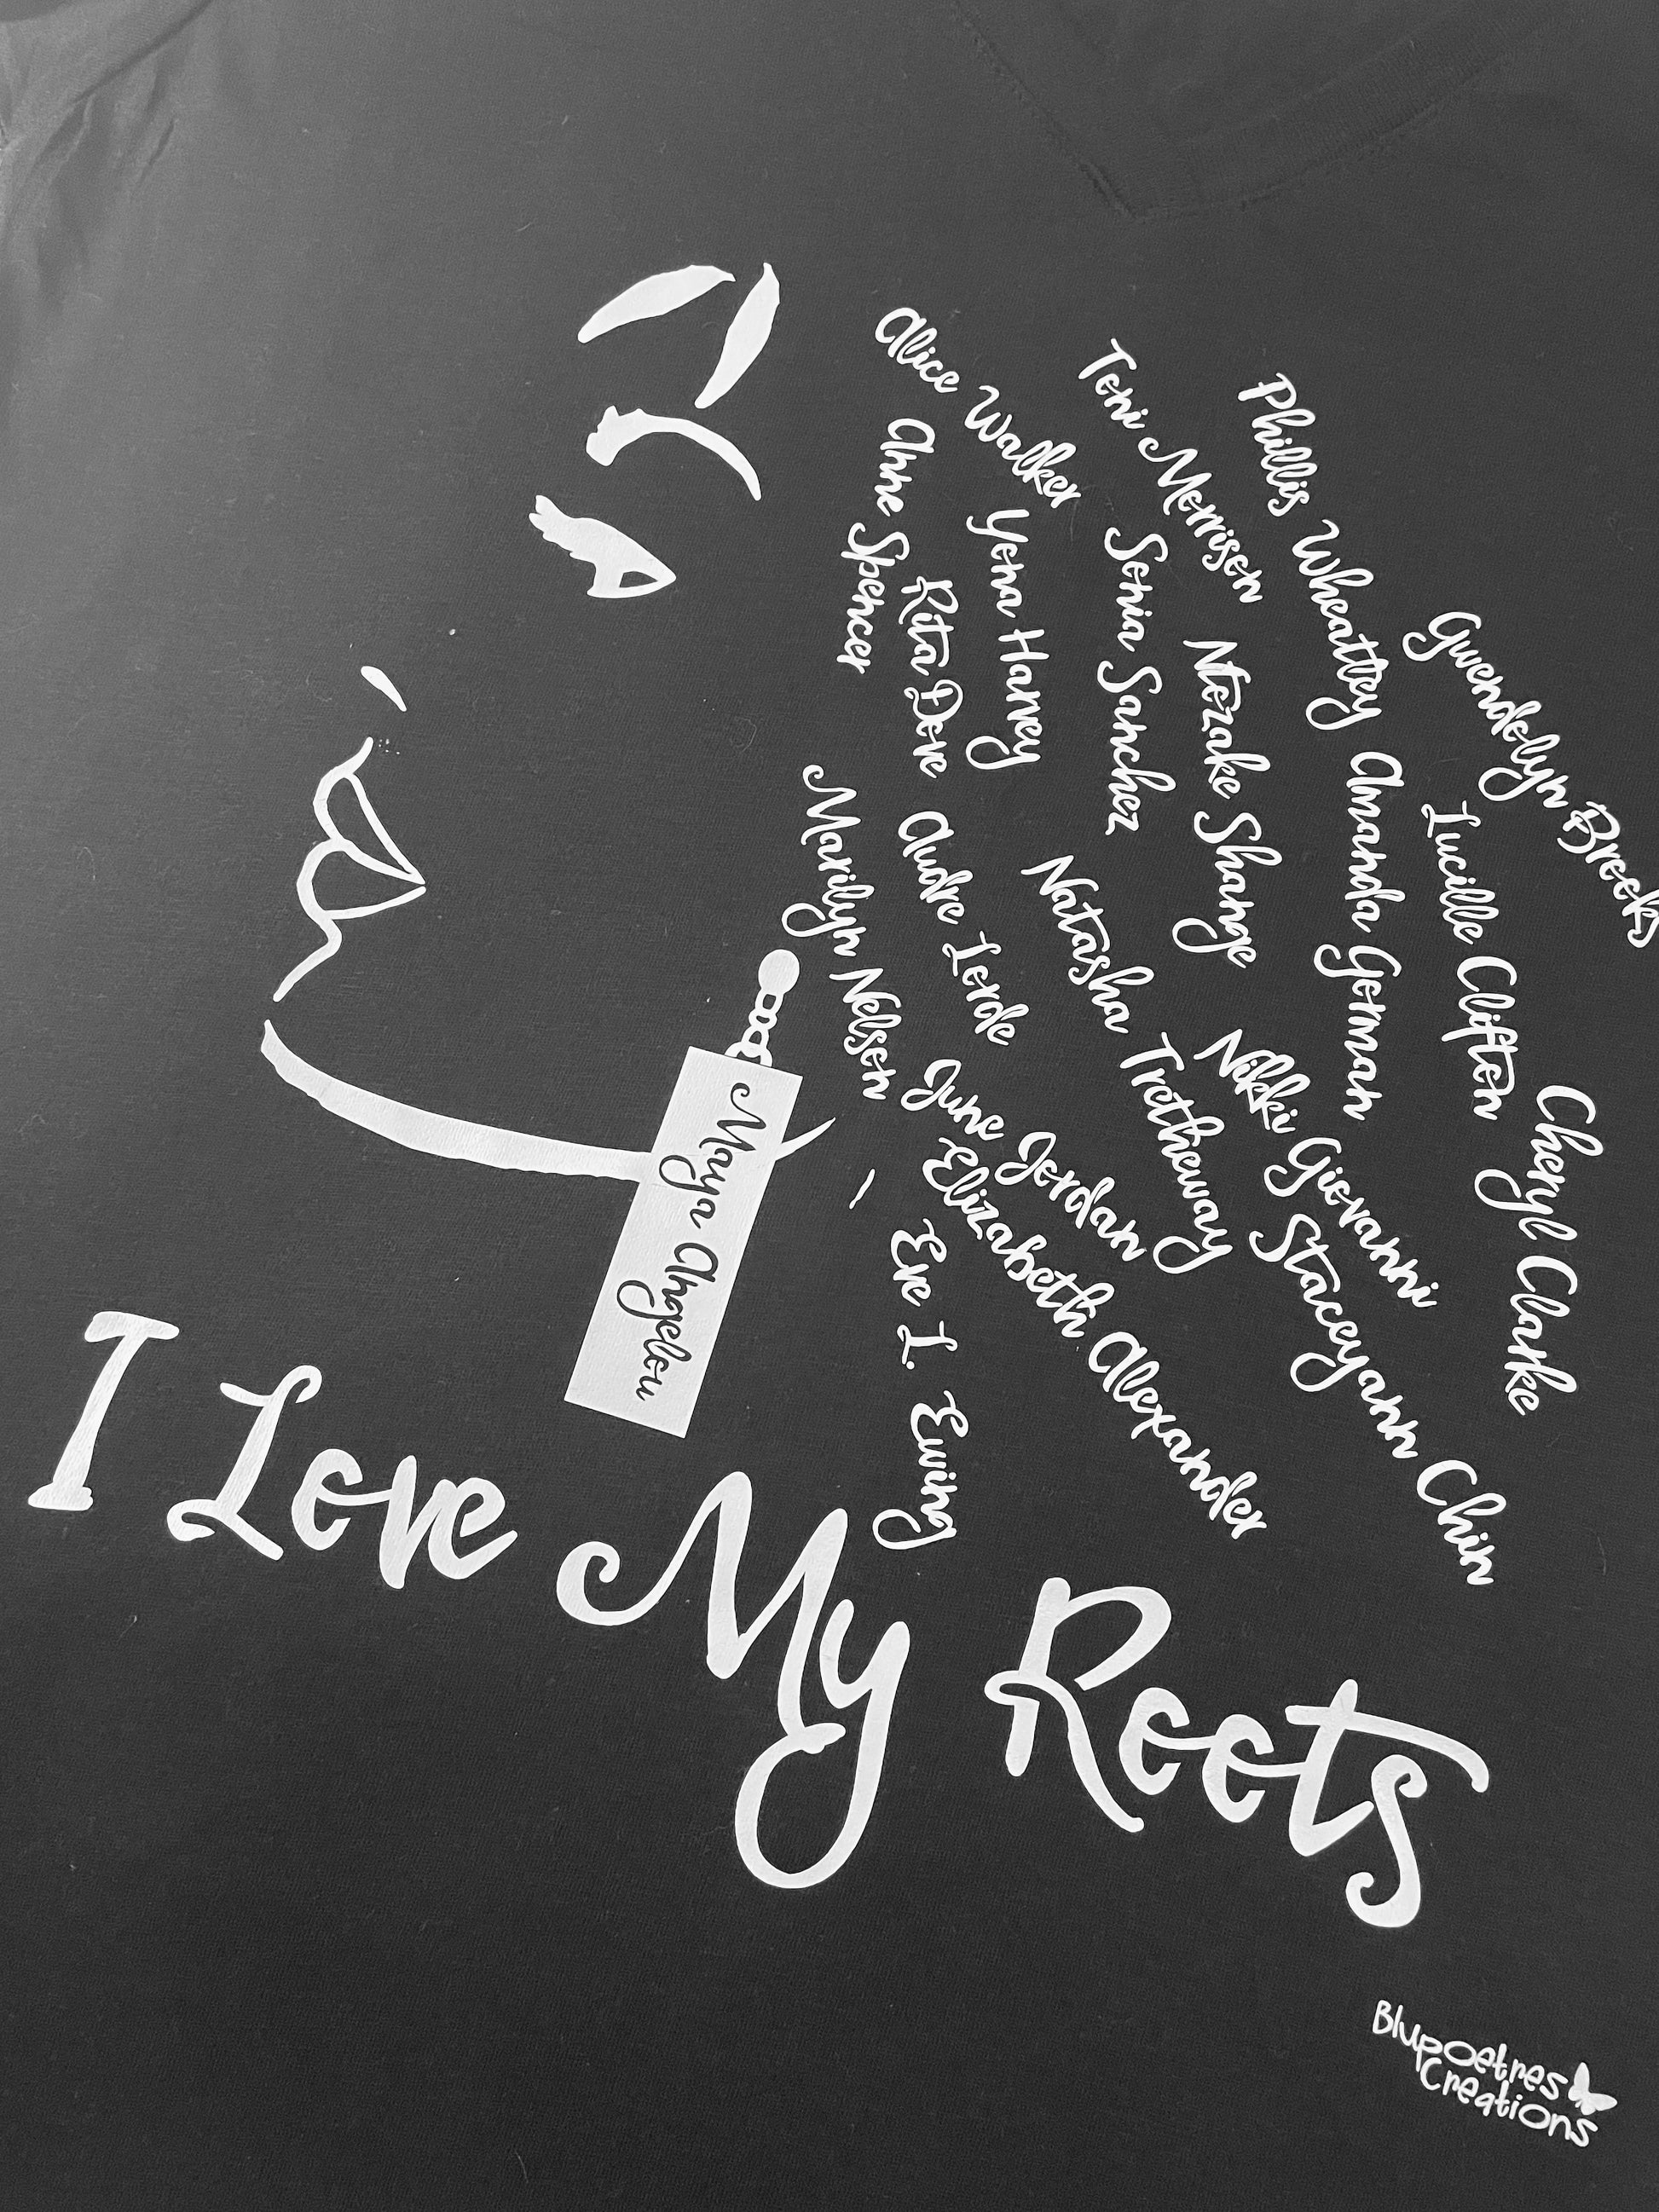 Alice Walker
Toni Morrison
Phillis Wheatley
Gwendolyn Brooks
Anne Spencer
Yona Harvey
Sonia Sanchez
Ntozake Shange
Amanda Gorman
Lucille Clifton
Rita Dove
Marilyn Nelson
Audre Lorde
Natasha Tretheway
Nikki Giovanni
Cheryl Clarke
June Jordan
Elizabeth Alexander
Staceyann Chin
Eve L. Ewing
Maya Angelou
I Love My Roots
Blupoetres
Creations